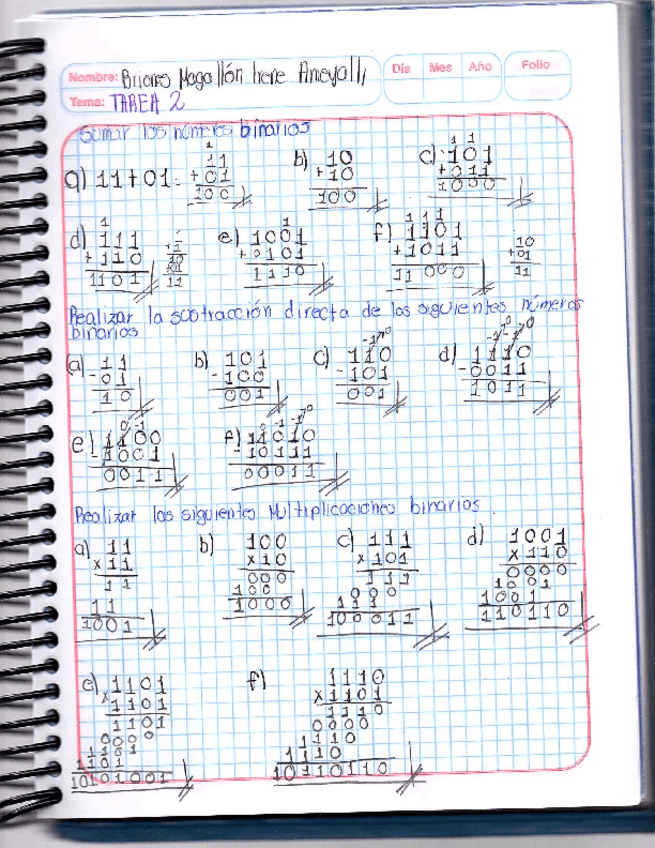 Nombre:
Día Mes Año Folio
Tema: TAREA 2
Sumar los números binarios
a) 11+01=
11
+01
100
b) 10
+10
100
c) 101
+011
1000
d) 111
+110
1101
e) 1001
+0101
1110
f) 1101
+1011
11000
10
01
11
Realizar la substracción directa de los siguientes números
binarios
a) 11
-01
10
b) 101
-100
001
c) 110
-101
001
d) 1110
-0011
1011
e) 1100
-1001
0011
f) 11010
-10111
00011
Realizar las siguientes Multiplicaciones binarios.
a) 11
x11
11
11
1001
b) 100
x10
000
100
1000
c) 111
x101
111
000
111
100011
d) 1001
x110
0000
1001
1001
110110
e) 1101
x1101
1101
0000
1101
1101
10101001
f) 1110
x1101
1110
0000
1110
1110
10110110